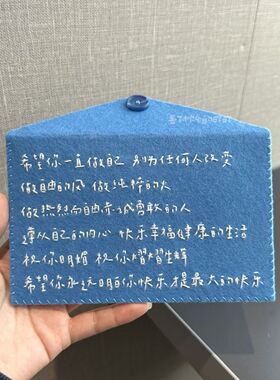 希望你一直做自己 别为任何人改变
做自由的风 做纯粹的火
做热烈而自由赤诚勇敢的人
遵从自己的内心 快乐幸福健康的生活
祝你明媚 祝你熠熠生辉
希望你永远明白你快乐才是最大的快乐